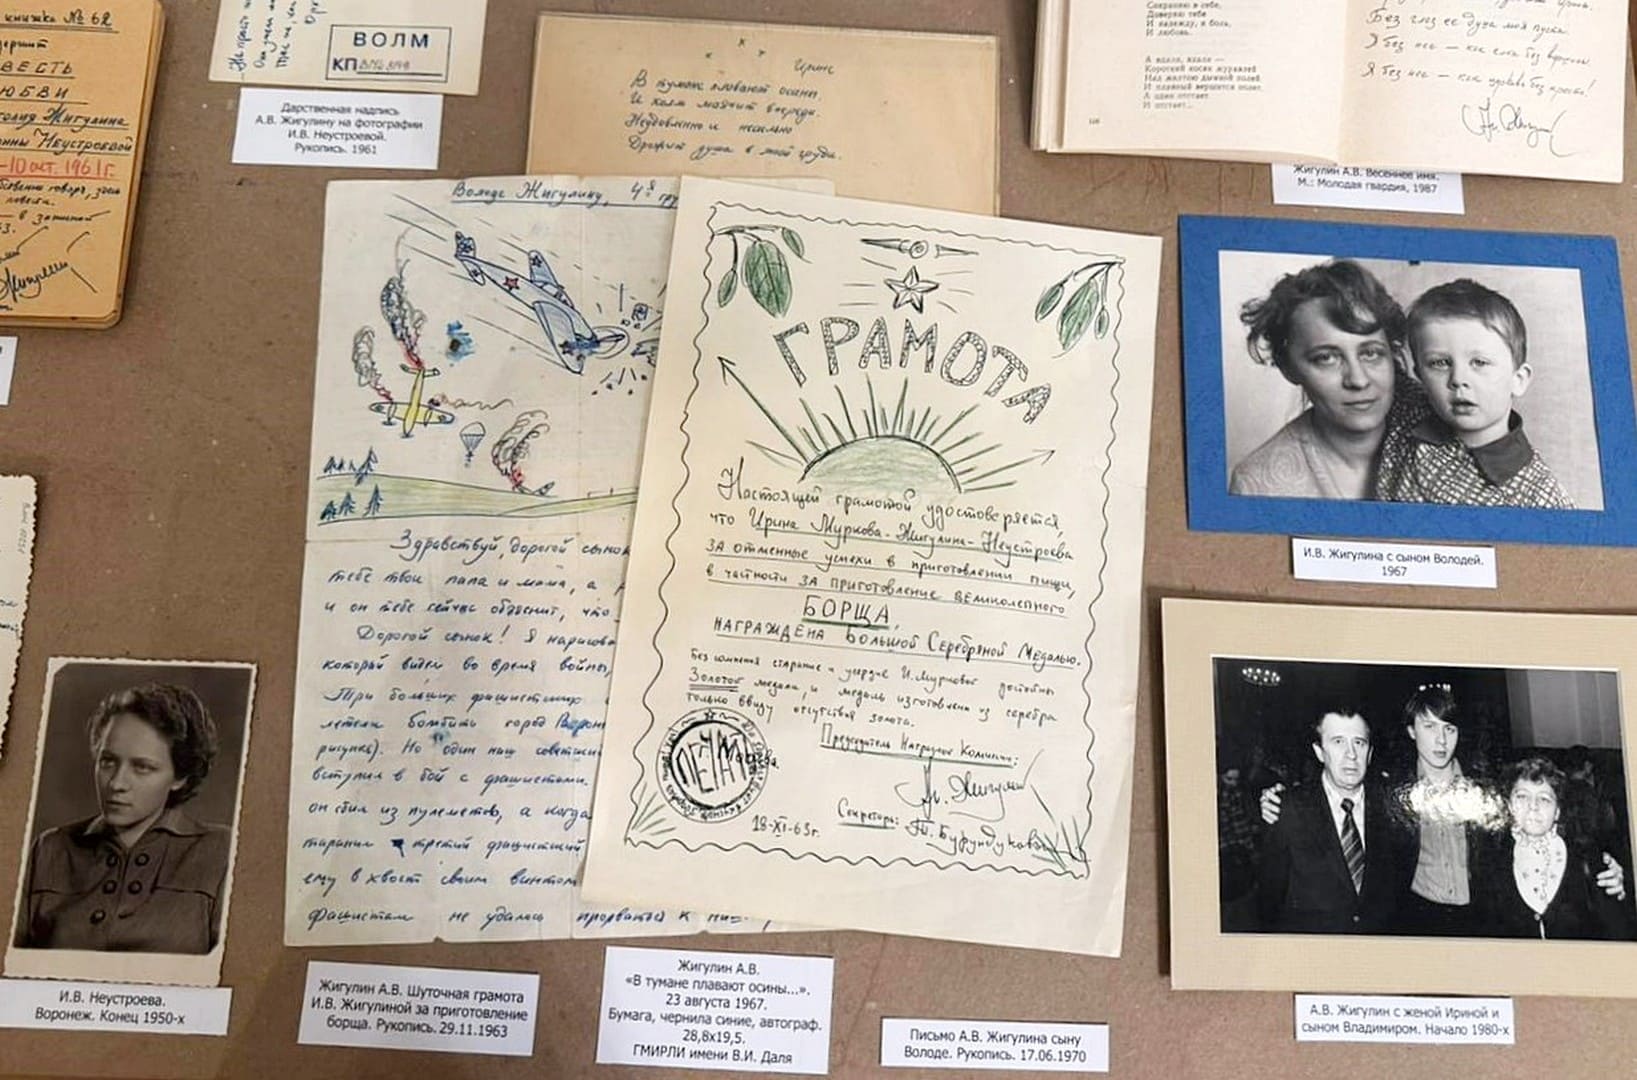 книжка № 62
ВЕСТЬ
ЮБВИ
Жигулина
Неустроевой
–10 окт. 1961 г.
ВОЛМ
КП
Дарственная надпись
А.В. Жигулину на фотографии
И.В. Неустроевой.
Рукопись. 1961
Ирине
В тумане плавают осины,
И холм маячит впереди.
Неудивленно и несильно
Дрожит душа в моей груди.
Сохраняю в себе,
Доверяю тебе
И надежду, и боль,
И любовь.
А вдали, вдали —
Короткий косяк журавлей
Над желтою дымной полей
И плавный вершится полет.
А один отстает
И отстает...
Без глаз ее душа моя пуста.
Я без нее — как
Я без нее — как
Ан. Жигулин
Жигулин А.В. Весеннее имя.
М.: Молодая гвардия, 1987
Володе Жигулину, 4 гр
Здравствуй, дорогой сынок
тебе твои папа и мама, а
и он тебе сейчас объяснит, что
Дорогой сынок! Я нарисова
который видел во время войны,
Три больших фашистских
летели бомбить город Ворон
рисунке). Но один наш советский
вступил в бой с фашистами.
он сбил из пулеметов, а когда
таранил третий фашистский
ему в хвост своим винтом
фашистам не удалось прорваться к
ГРАМОТА
Настоящей грамотой удостоверяется,
что Ирина Муркова-Жигулина-Неустроева
за отменные успехи в приготовлении пищи,
в частности за приготовление великолепного
БОРЩА,
НАГРАЖДЕНА Большой Серебряной Медалью.
Без сомнения старание и усердие И.Мурковой достойны
Золотой медали, и медаль изготовлена из серебра
только ввиду отсутствия золота.
Председатель Наградной Комиссии:
Ан. Жигулин
Секретарь: Т. Бурундукова
ПЕЧАТЬ
Москва.
18-XI-63г.
И.В. Жигулина с сыном Володей.
1967
И.В. Неустроева.
Воронеж. Конец 1950-х
Жигулин А.В. Шуточная грамота
И.В. Жигулиной за приготовление
борща. Рукопись. 29.11.1963
Жигулин А.В.
«В тумане плавают осины...».
23 августа 1967.
Бумага, чернила синие, автограф.
28,8х19,5.
ГМИРЛИ имени В.И. Даля
Письмо А.В. Жигулина сыну
Володе. Рукопись. 17.06.1970
А.В. Жигулин с женой Ириной и
сыном Владимиром. Начало 1980-х